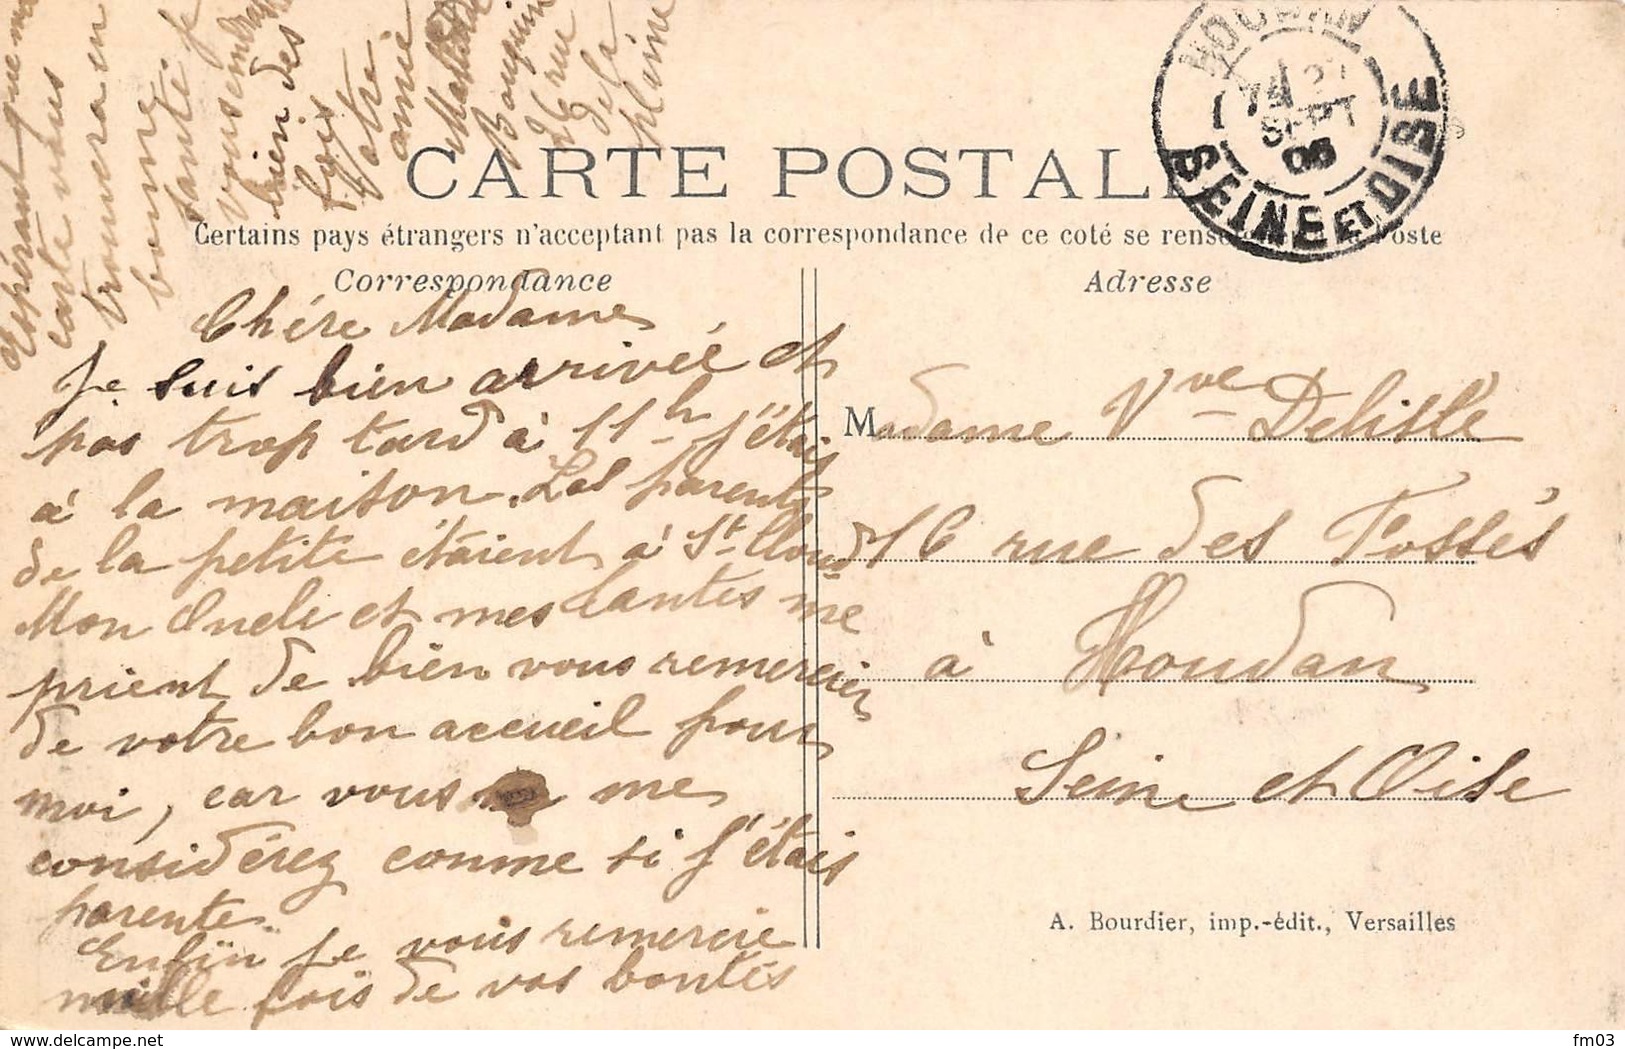 CARTE POSTALE
Certains pays étrangers n'acceptant pas la correspondance de ce coté se à la Poste
Correspondance
Adresse
HOUDAN
SEPT
06
SEINE ET OISE
Chére Madame
Je suis bien arrivée et
pas trop tard à 11h j'étais
à la maison. Les parents
de la petite étaient à St Cloud
Mon Oncle et mes tantes me
prient de bien vous remercier
de votre bon accueil pour
moi, car vous me
considérez comme si j'étais
parente.
Enfin je vous remercie
mille fois de vos bontés
Espérant que ma
carte vous
trouvera en
bonne
santé. Je
vous embrasse
bien des
fois
Votre
amie
Mathilde
Bouquin
26 rue
de la
plaine
Madame Vve Delisle
16 rue des Fossés
à Houdan
Seine et Oise
A. Bourdier, imp.-édit., Versailles
delcampe.net
fm03